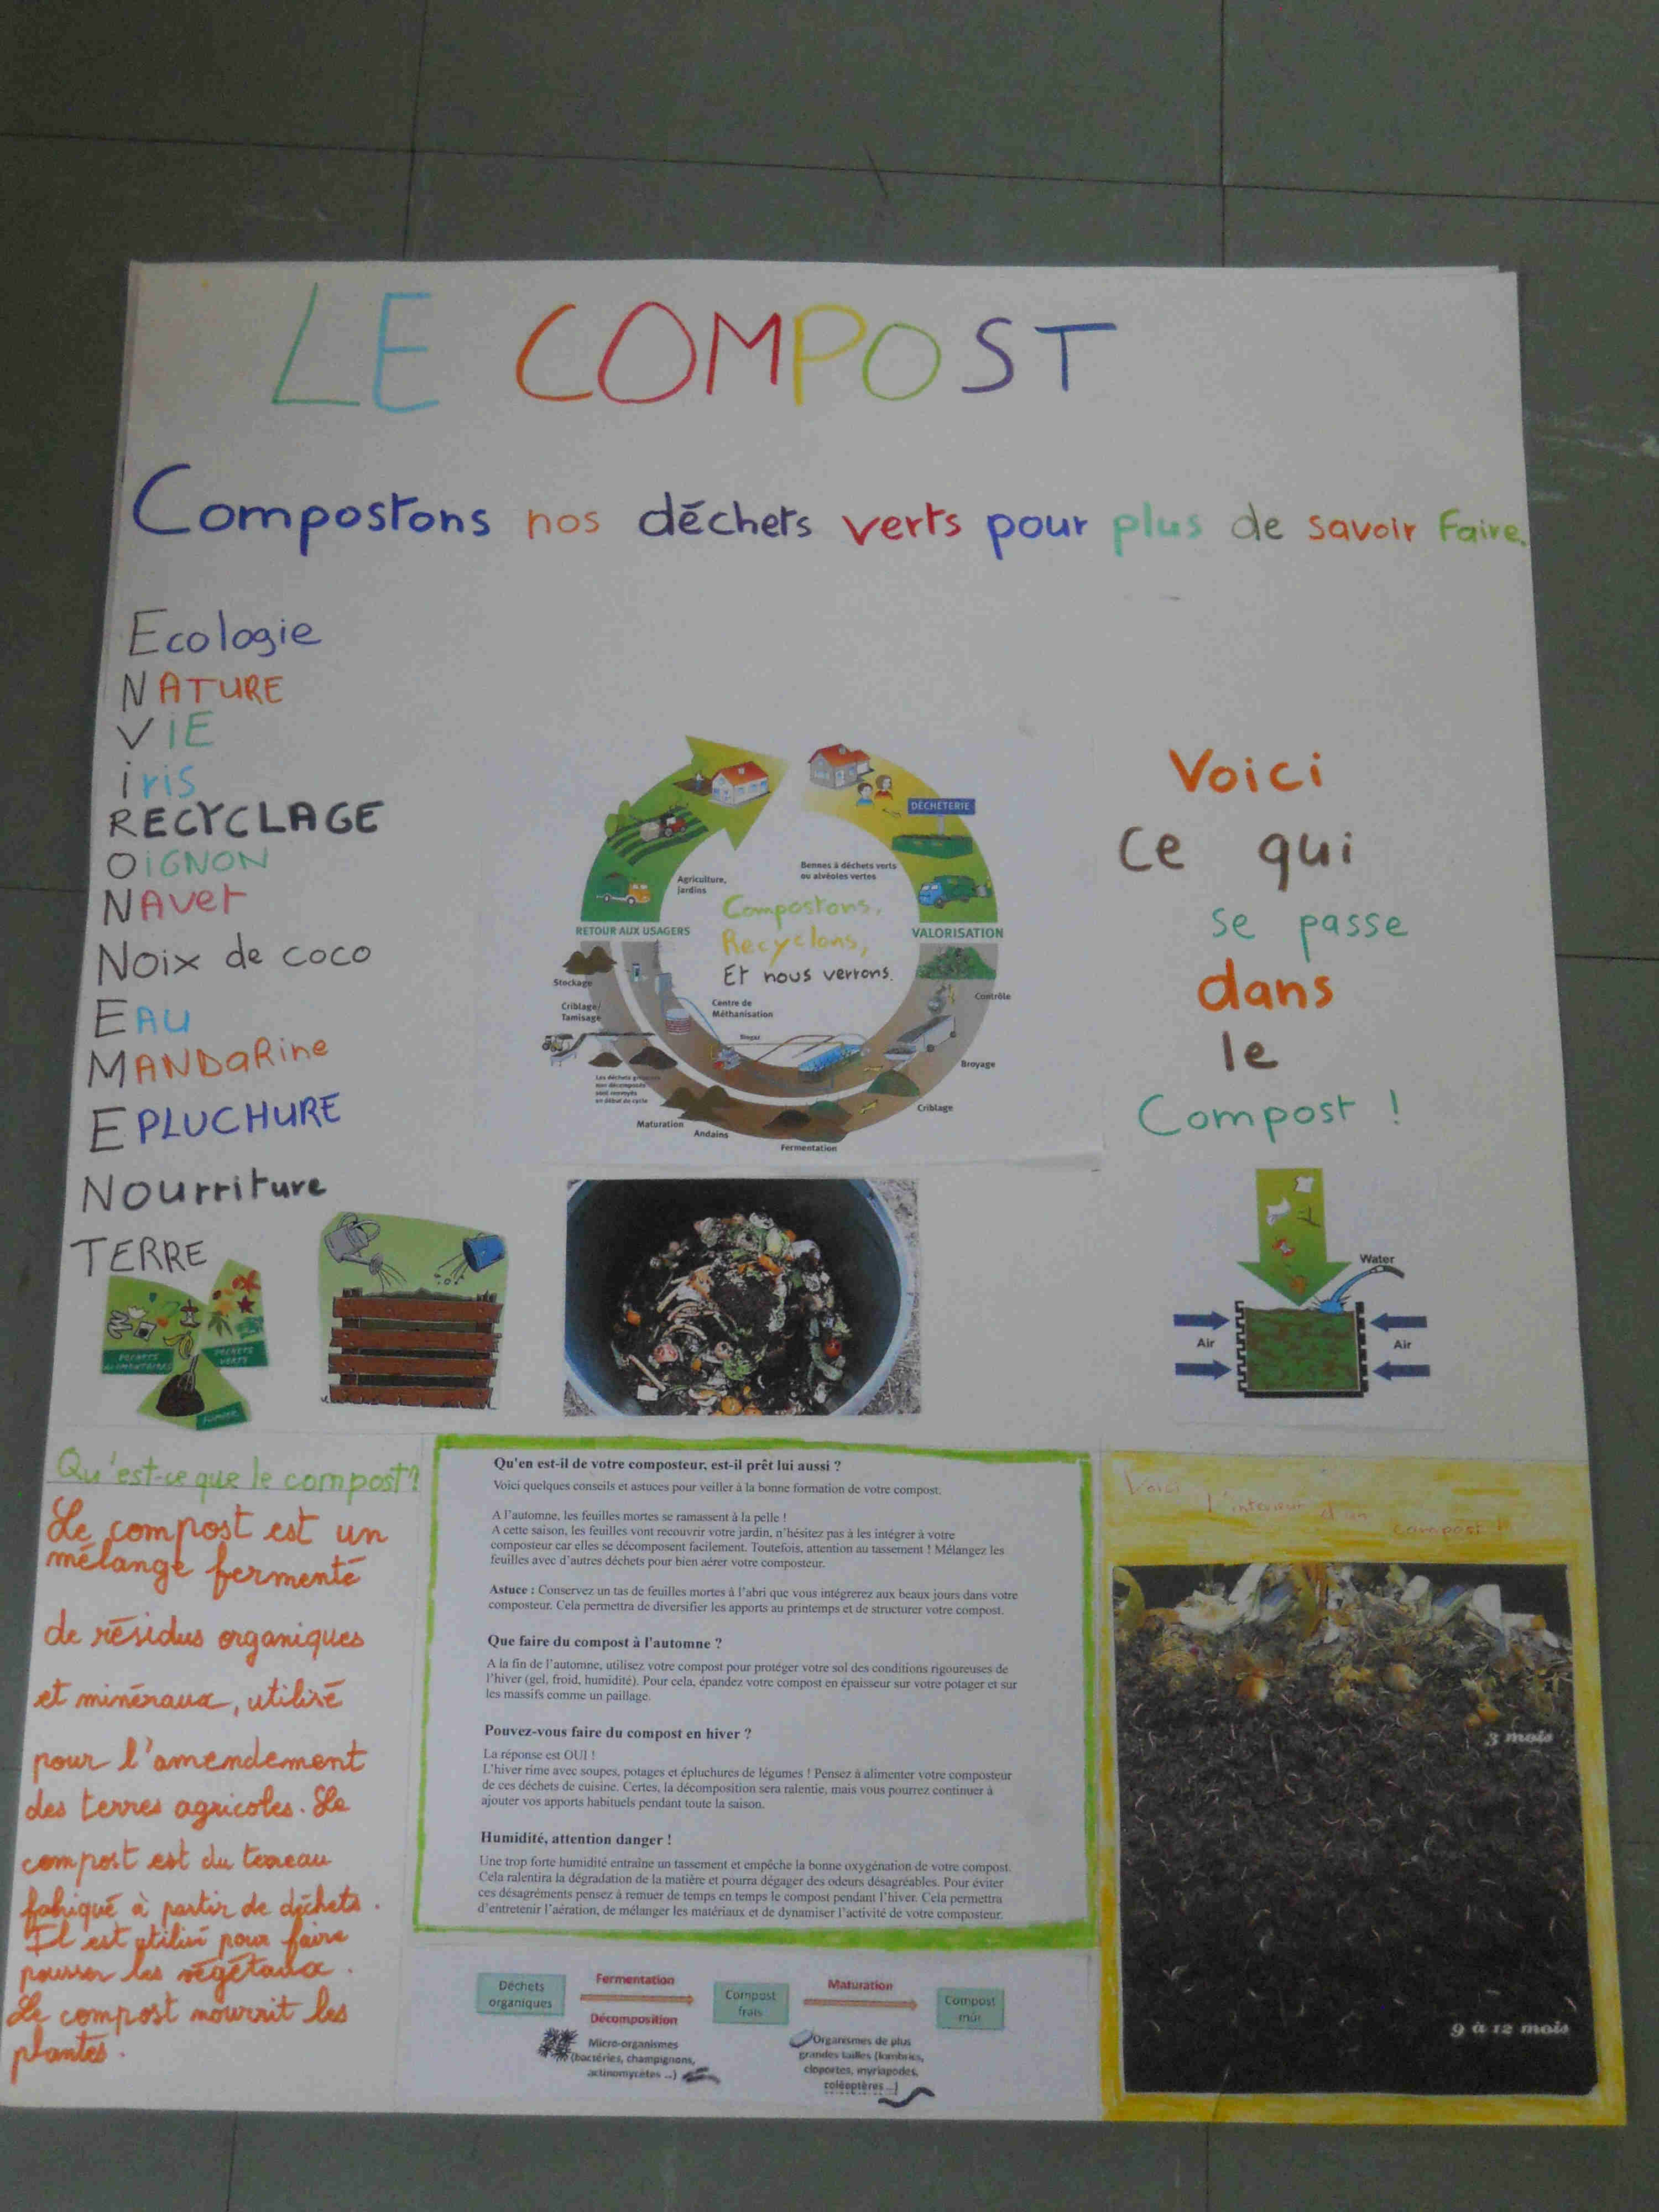 LE COMPOST
Compostons nos déchets verts pour plus de savoir faire.
Ecologie
NATURE
ViE
iris
RECYCLAGE
OiGNON
NAvet
Noix de coco
EAU
MANDaRine
EPLUCHURE
Nourriture
TERRE
DÉCHETERIE
Bennes à déchets verts
ou alvéoles vertes
Agriculture,
Jardins
Compostons,
Recyclons,
Et nous verrons.
RETOUR AUX USAGERS
VALORISATION
Stockage
Contrôle
Criblage/
Tamisage
Centre de
Méthanisation
Biogaz
Broyage
Les déchets
non décomposés
sont renvoyés
en début de cycle
Criblage
Maturation
Andains
Fermentation
Voici
Ce qui
se passe
dans
le
Compost !
Water
Air
Air
DECHETS
ALIMENTAIRES
DECHETS
VERTS
FUMIER
Qu'est-ce que le compost?
Le compost est un
mélange fermenté
de résidus organiques
et minéraux, utilisé
pour l'amendement
des terres agricoles. Le
compost est du terreau
fabriqué à partir de déchets.
Il est utilisé pour faire
pousser les végétaux.
Le compost nourrit les
plantes.
Qu'en est-il de votre composteur, est-il prêt lui aussi ?
Voici quelques conseils et astuces pour veiller à la bonne formation de votre compost.
A l'automne, les feuilles mortes se ramassent à la pelle !
A cette saison, les feuilles vont recouvrir votre jardin, n'hésitez pas à les intégrer à votre
composteur car elles se décomposent facilement. Toutefois, attention au tassement ! Mélangez les
feuilles avec d'autres déchets pour bien aérer votre composteur.
Astuce : Conservez un tas de feuilles mortes à l'abri que vous intégrerez aux beaux jours dans votre
composteur. Cela permettra de diversifier les apports au printemps et de structurer votre compost.
Que faire du compost à l'automne ?
A la fin de l'automne, utilisez votre compost pour protéger votre sol des conditions rigoureuses de
l'hiver (gel, froid, humidité). Pour cela, épandez votre compost en épaisseur sur votre potager et sur
les massifs comme un paillage.
Pouvez-vous faire du compost en hiver ?
La réponse est OUI !
L'hiver rime avec soupes, potages et épluchures de légumes ! Pensez à alimenter votre composteur
de ces déchets de cuisine. Certes, la décomposition sera ralentie, mais vous pourrez continuer à
ajouter vos apports habituels pendant toute la saison.
Humidité, attention danger !
Une trop forte humidité entraîne un tassement et empêche la bonne oxygénation de votre compost.
Cela ralentira la dégradation de la matière et pourra dégager des odeurs désagréables. Pour éviter
ces désagréments pensez à remuer de temps en temps le compost pendant l'hiver. Cela permettra
d'entretenir l'aération, de mélanger les matériaux et de dynamiser l'activité de votre composteur.
Voici L'interieur d'un
compost !
3 mois
9 à 12 mois
Déchets
organiques
Fermentation
Décomposition
Micro-organismes
(bactéries, champignons,
actinomycètes ...)
Compost
frais
Maturation
Organismes de plus
grandes tailles (lombrics,
cloportes, myriapodes,
coléoptères ...)
Compost
mûr